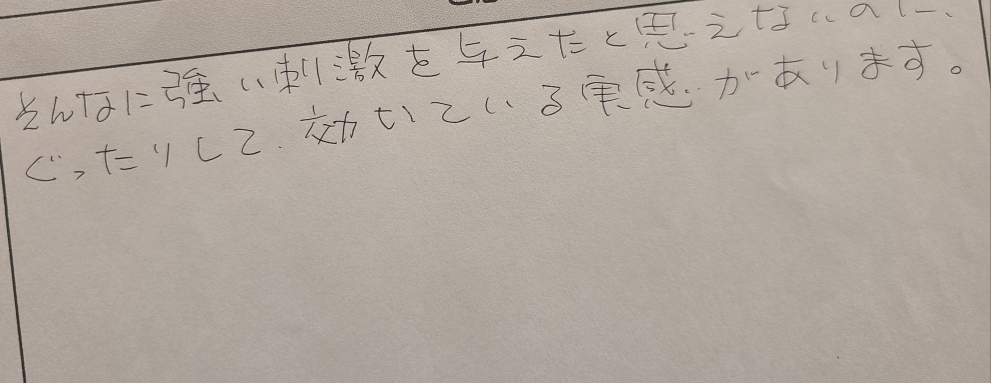 そんなに強い刺激を与えたと思えないのに、
ぐったりして、効いている実感があります。